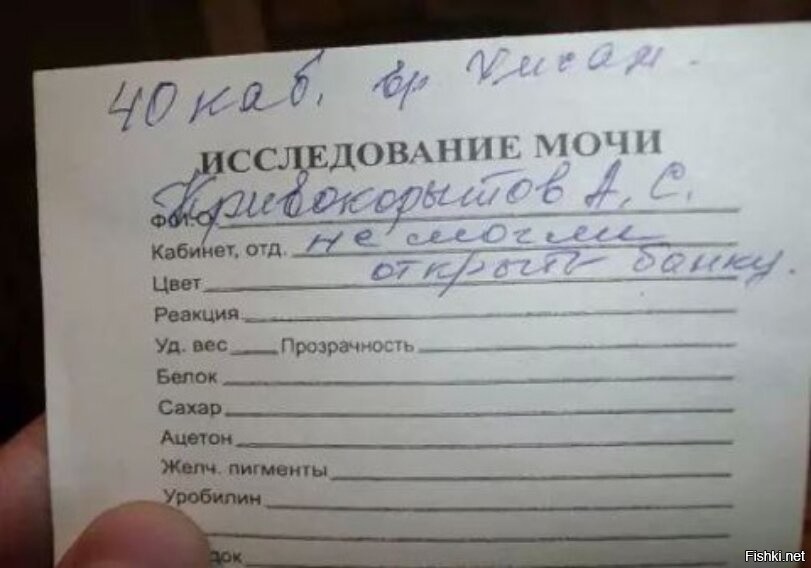 40 каб. вр
ИССЛЕДОВАНИЕ МОЧИ
Ф.И.О. Кривокорытов А. С.
Кабинет, отд. не могли
открыть банку.
Цвет
Реакция
Уд. вес Прозрачность
Белок
Сахар
Ацетон
Желч. пигменты
Уробилин
Fishki.net